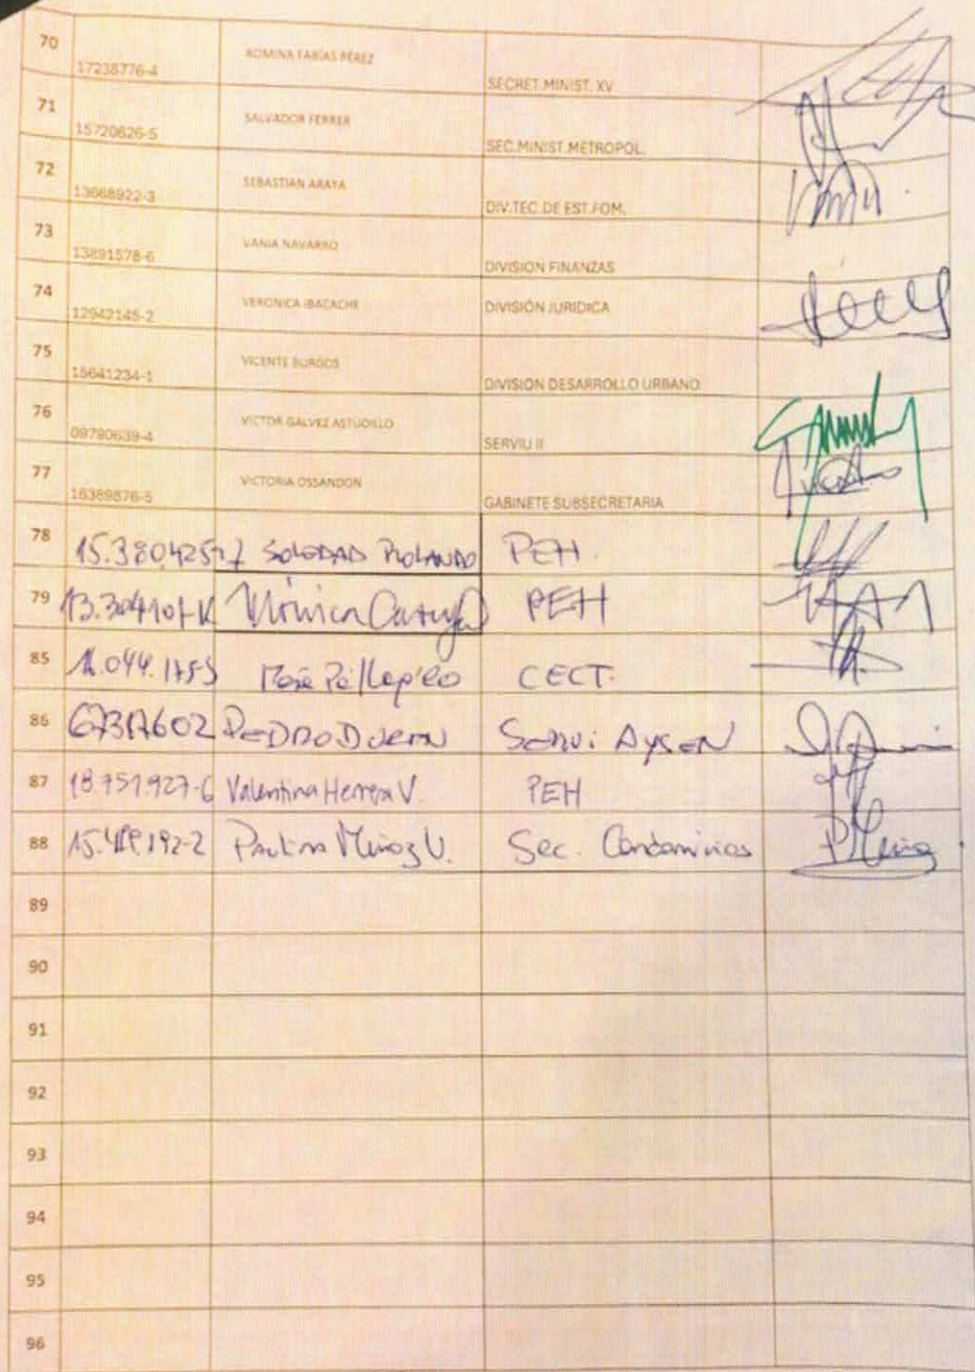 70 17238776-4 ROMINA FARÍAS PÉREZ SECRET.MINIST. XV
71 15720626-5 SALVADOR FERRER SEC.MINIST.METROPOL.
72 13668922-3 SEBASTIAN ARAYA DIV.TEC.DE EST.FOM.
73 13891578-6 VANIA NAVARRO DIVISION FINANZAS
74 12942145-2 VERONICA IBACACHE DIVISIÓN JURIDICA
75 15641234-1 VICENTE BURGOS DIVISION DESARROLLO URBANO
76 09790639-4 VICTOR GALVEZ ASTUDILLO SERVIU II
77 16389876-5 VICTORIA OSSANDON GABINETE SUBSECRETARIA
78 SOLEDAD ROLANDO PEH.
79 Mónica PEH
85 CECT.
86 PEDRO DURAN SERVIU AYSEN
87 18.751.927-6 Valentina Herrera V. PEH
88 Paulina Muñoz V. Sec. Condominios
89
90
91
92
93
94
95
96